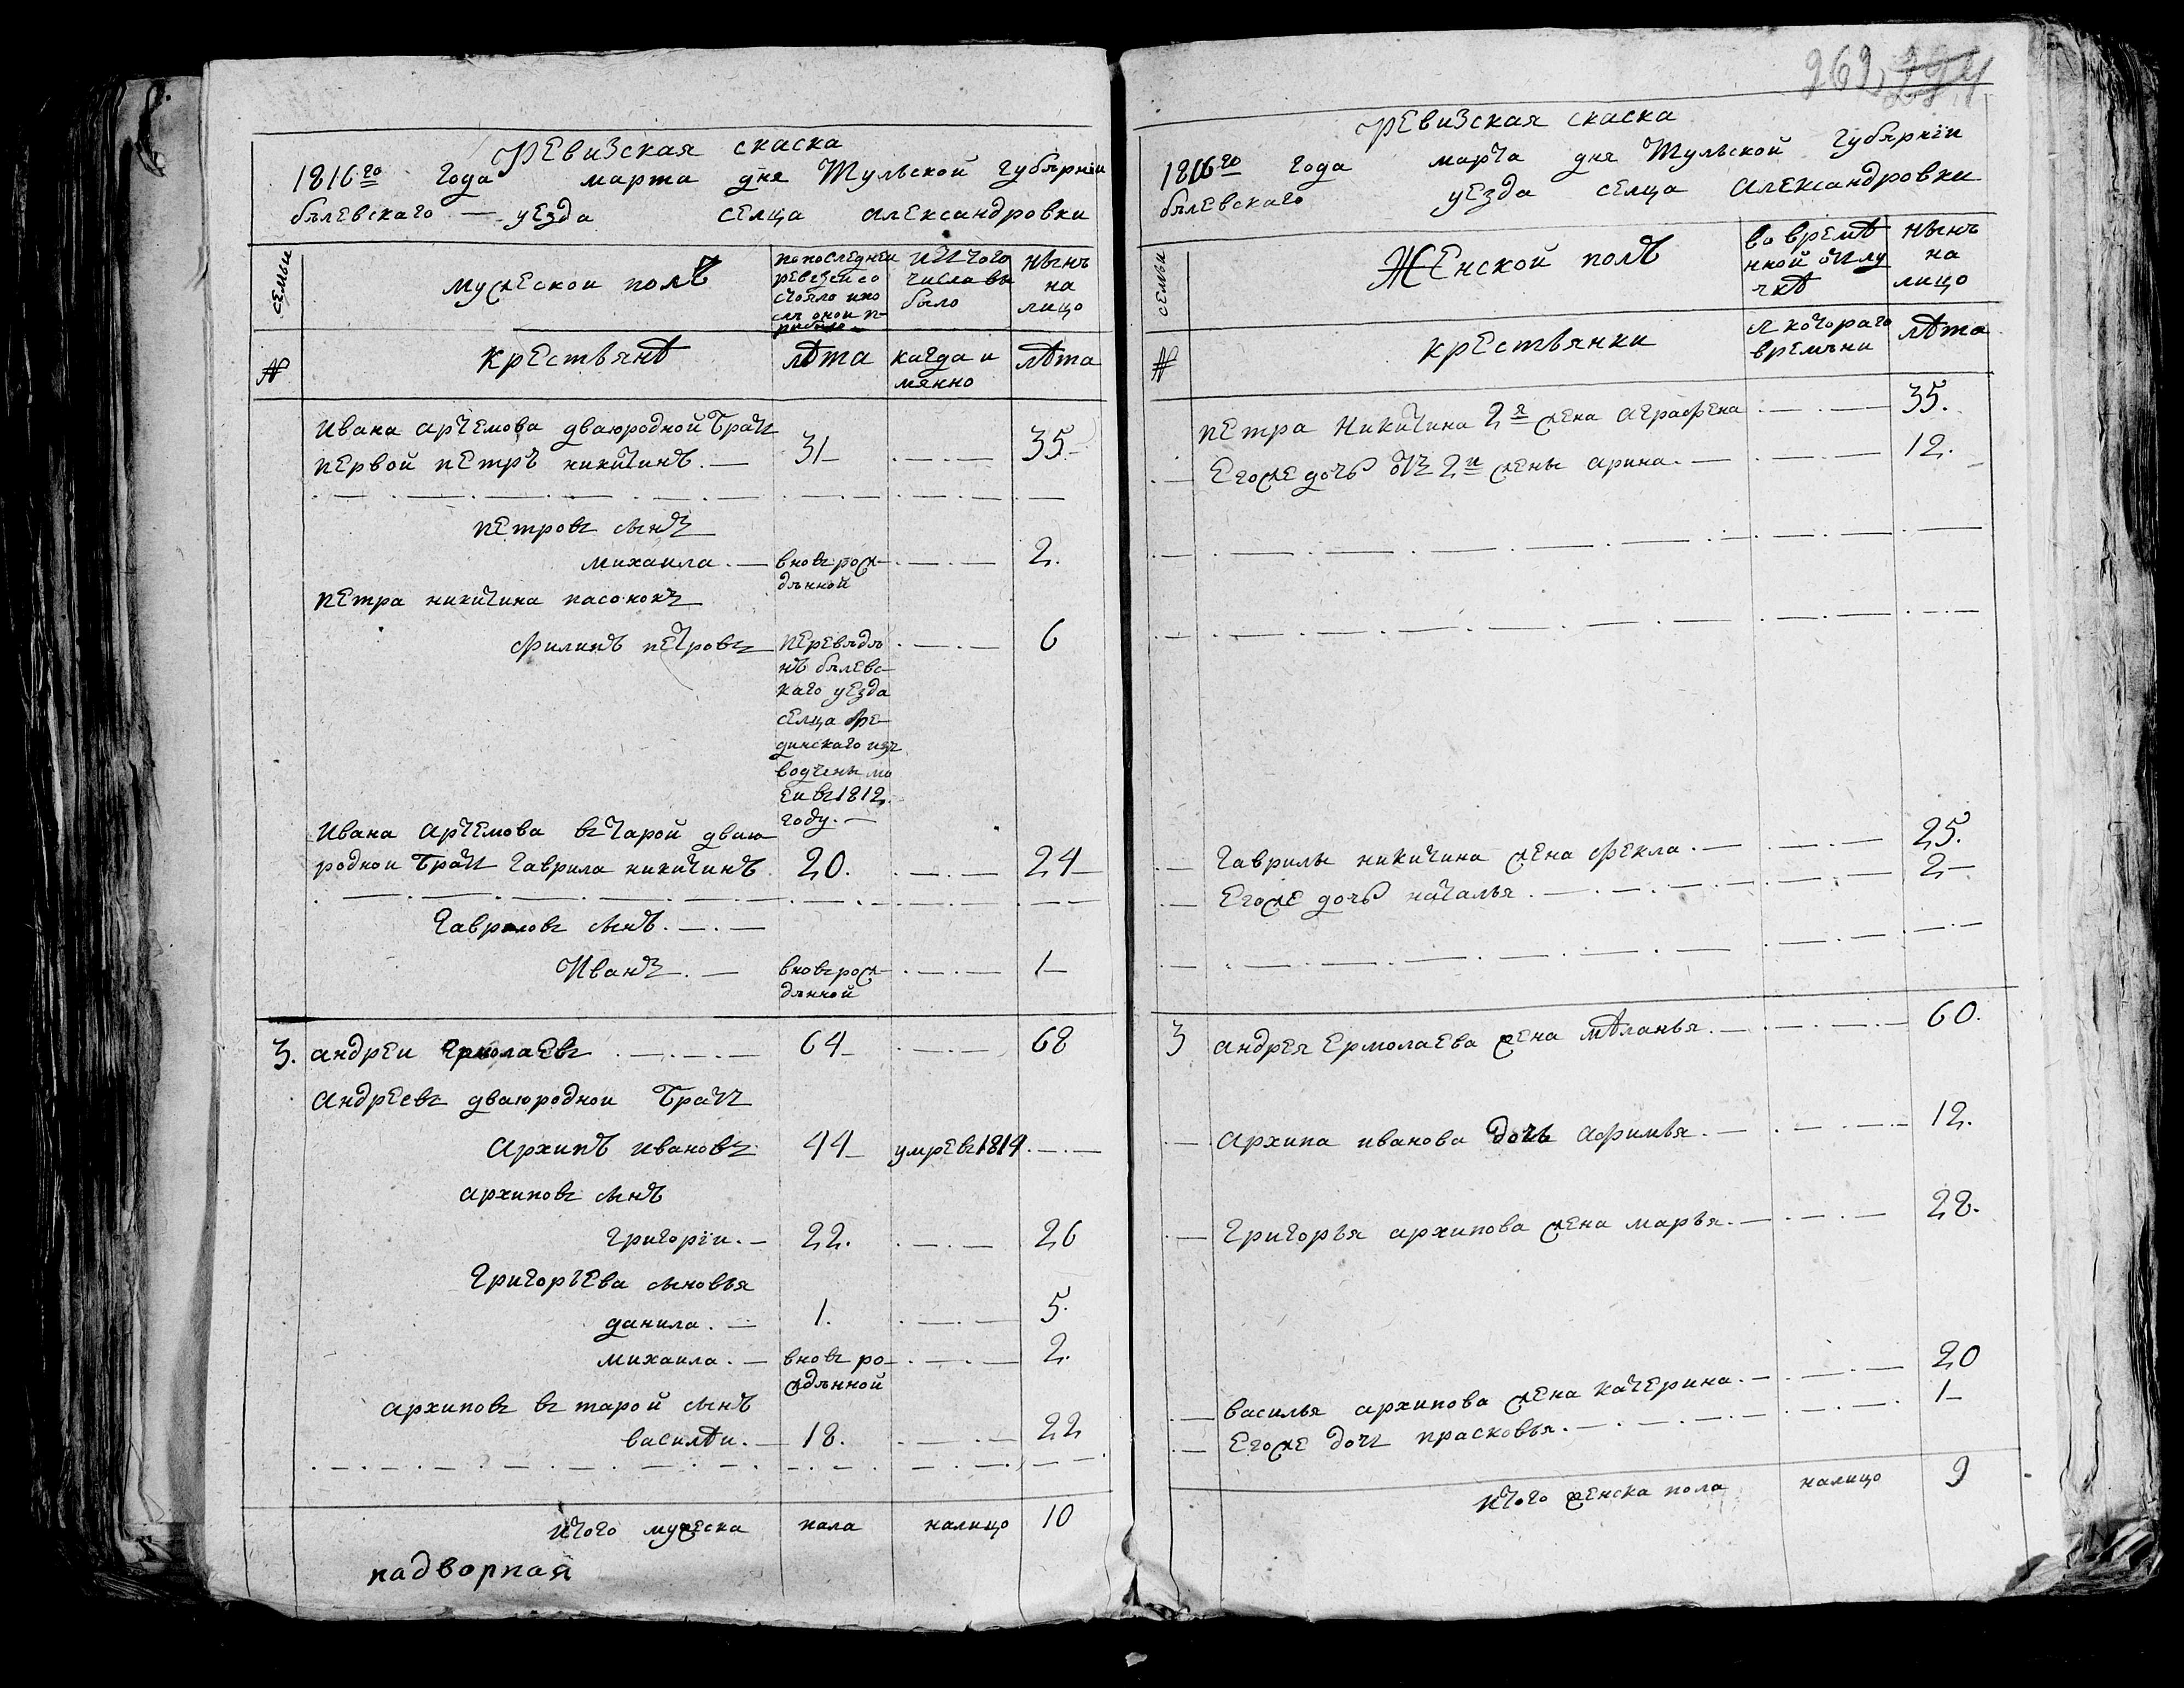 Ревизская скаска
1816го года марта дня Тульской губѣрніи
бѣлевскаго — уезда селца александровки
семьи
мужескои полъ
попоследнеи
ревезеи со
стояло ипо
слѣ онои п-
рибыло
исъ того
числа вы
было
нынъ
на
лицо
№
крестьянѣ
лѣта
когда и
мянно
лѣта
Ивана артемова дваюродной братъ
первой петръ никитинъ. — 31 — 35. —
петровъ сынъ
михаила. — вновь рож- 2.
дѣнной
петра никитина пасонокъ
филипъ петровъ перевѣдѣ 6
нъ бѣлевс-
каго уезда
селца фе-
динскаго изъ
вотчены мо
еи въ 1812.
году. —
Ивана артемова въ тарой дваю-
роднои братъ гаврила никитинъ 20. 24 —
гавриловъ сынъ. — . —
Иванъ. — вновь рож- 1 —
дѣнной
3. андреи ермолаевъ 64 — 68
андреевъ дваюроднои братъ
архипъ ивановъ 44 — умре въ 1814.
архиповъ сынъ
григоріи. — 22. 26
григорьева сыновья
данила. — 1. 5.
михаила. — вновь ро- 2.
ждѣнной
архиповъ въ тарой сынъ
василѣи. — 18. 22
итого мужеска пала налицо 10
падворная
262, 224
Ревизская скаска
1816го года марта дня Тульской губѣрніи
бѣлевскаго уезда селца александровки
семьи
Женской полъ
во времѣ
нной отлу
чкѣ
нынъ
на
лицо
№
крестьянки
съ котораго
времѣни
лѣта
петра никитина 2я жена аграфена 35.
егоже дочь отъ 2й жены арина. — 12.
гаврилы никитина жена фекла. — 25.
егоже дочь наталья. — 2 —
3 андрея ермолаева жена мѣланья. — 60.
архипа иванова дочь афимья. — 12.
григорья архипова жена марья. — 28.
василья архипова жена катерина. — 20
егоже дочь прасковья. — 1 —
итого женска пола налицо 9